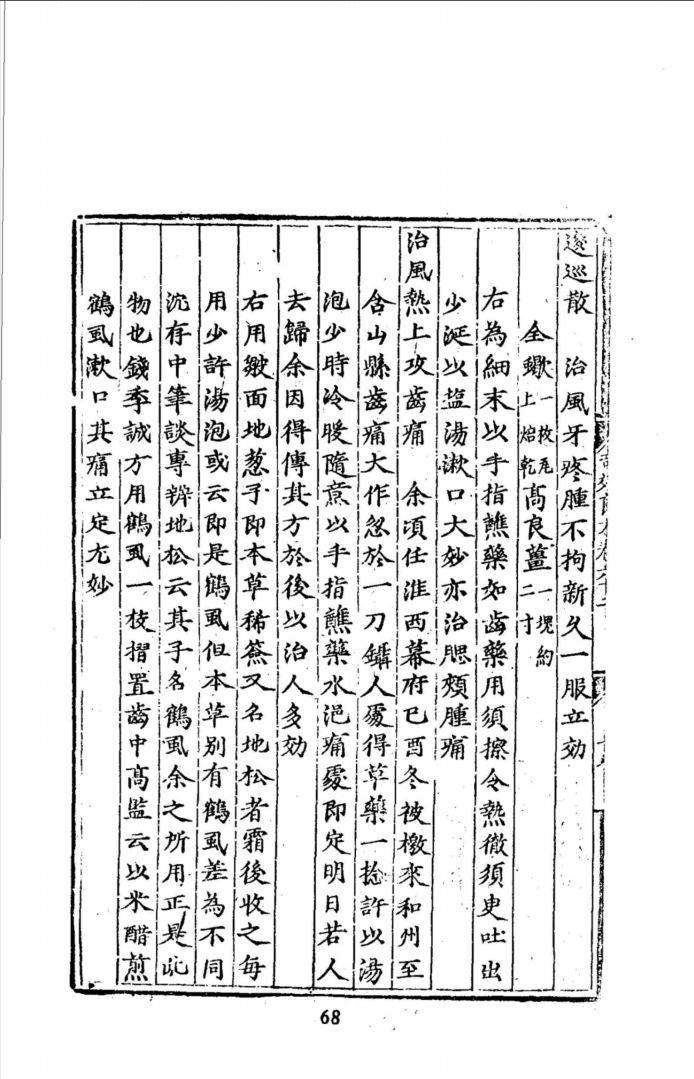 逡巡散　治風牙疼腫不拘新久一服立効
全蠍一枚瓦上焙乾高良薑一塊約二寸
右為細末以手指蘸藥如齒藥用須擦令熱徹須臾吐出
少涎以塩湯漱口大妙亦治腮頰腫痛
治風熱上攻齒痛　余頃任淮西幕府已酉冬被檄來和州至
含山縣齒痛大作忽於一刀鑷人處得草藥一捻許以湯
泡少時冷暖隨意以手指蘸藥水浥痛處即定明日若人
去歸余因得傳其方於後以治人多効
右用皺面地葱子即本草稀薟又名地松者霜後收之每
用少許湯泡或云即是鶴虱但本草別有鶴虱差為不同
沉存中筆談專辨地松云其子名鶴虱余之所用正是此
物也錢季誠方用鶴虱一枝摺置齒中高監云以米醋煎
鶴虱漱口其痛立定尤妙
68